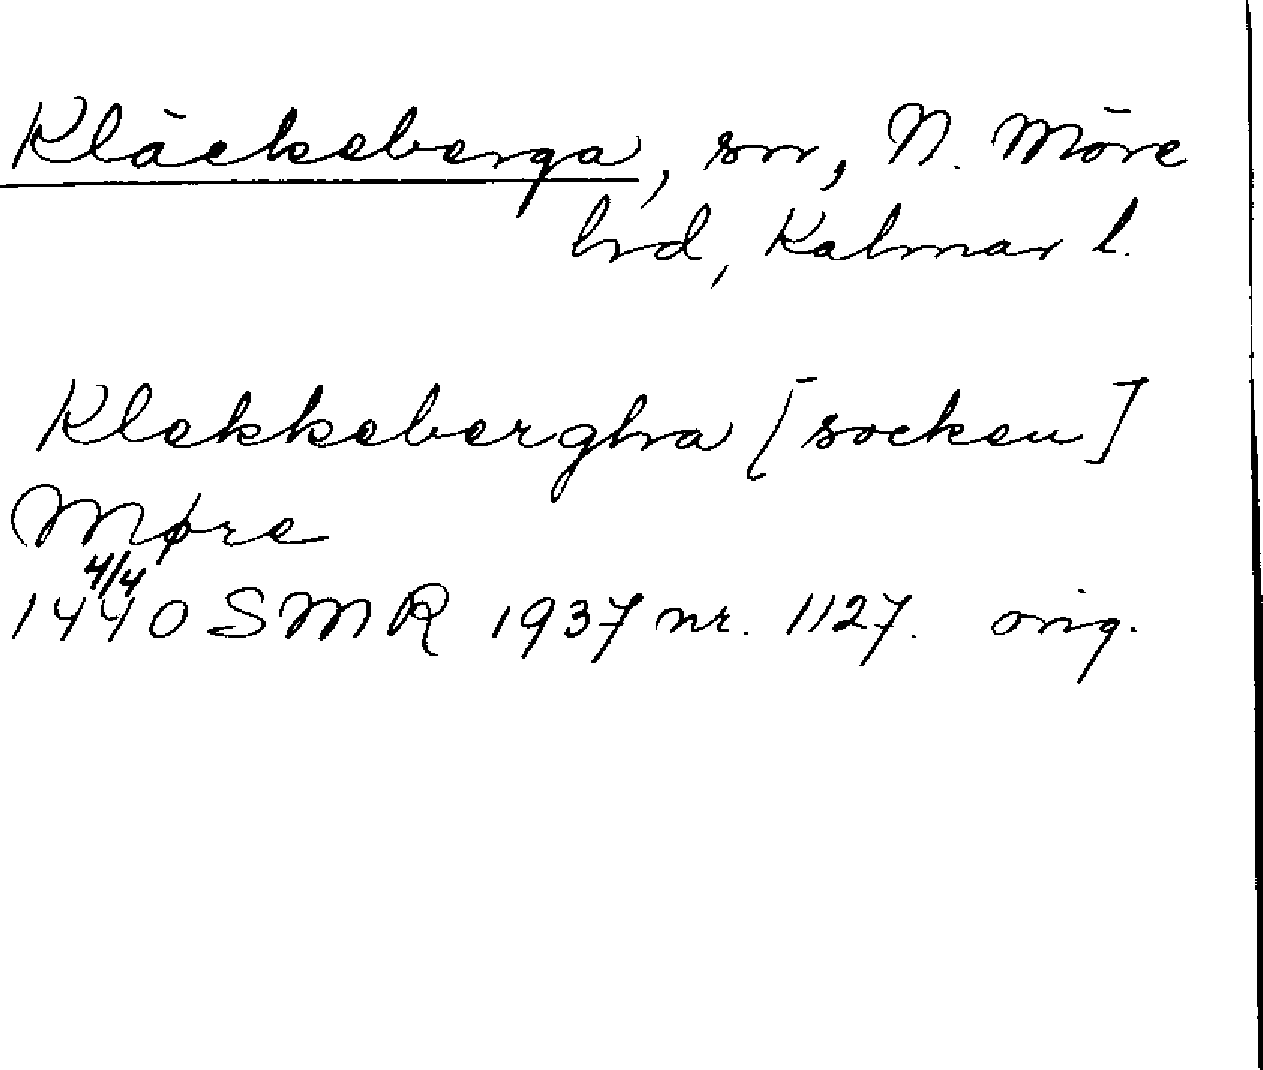 Kläckeberga, sn, N. Möre
hd, Kalmar l.
Klekkebergha [socken]
Møre
4/4
1440 SMR 1937 nr. 1127. orig.